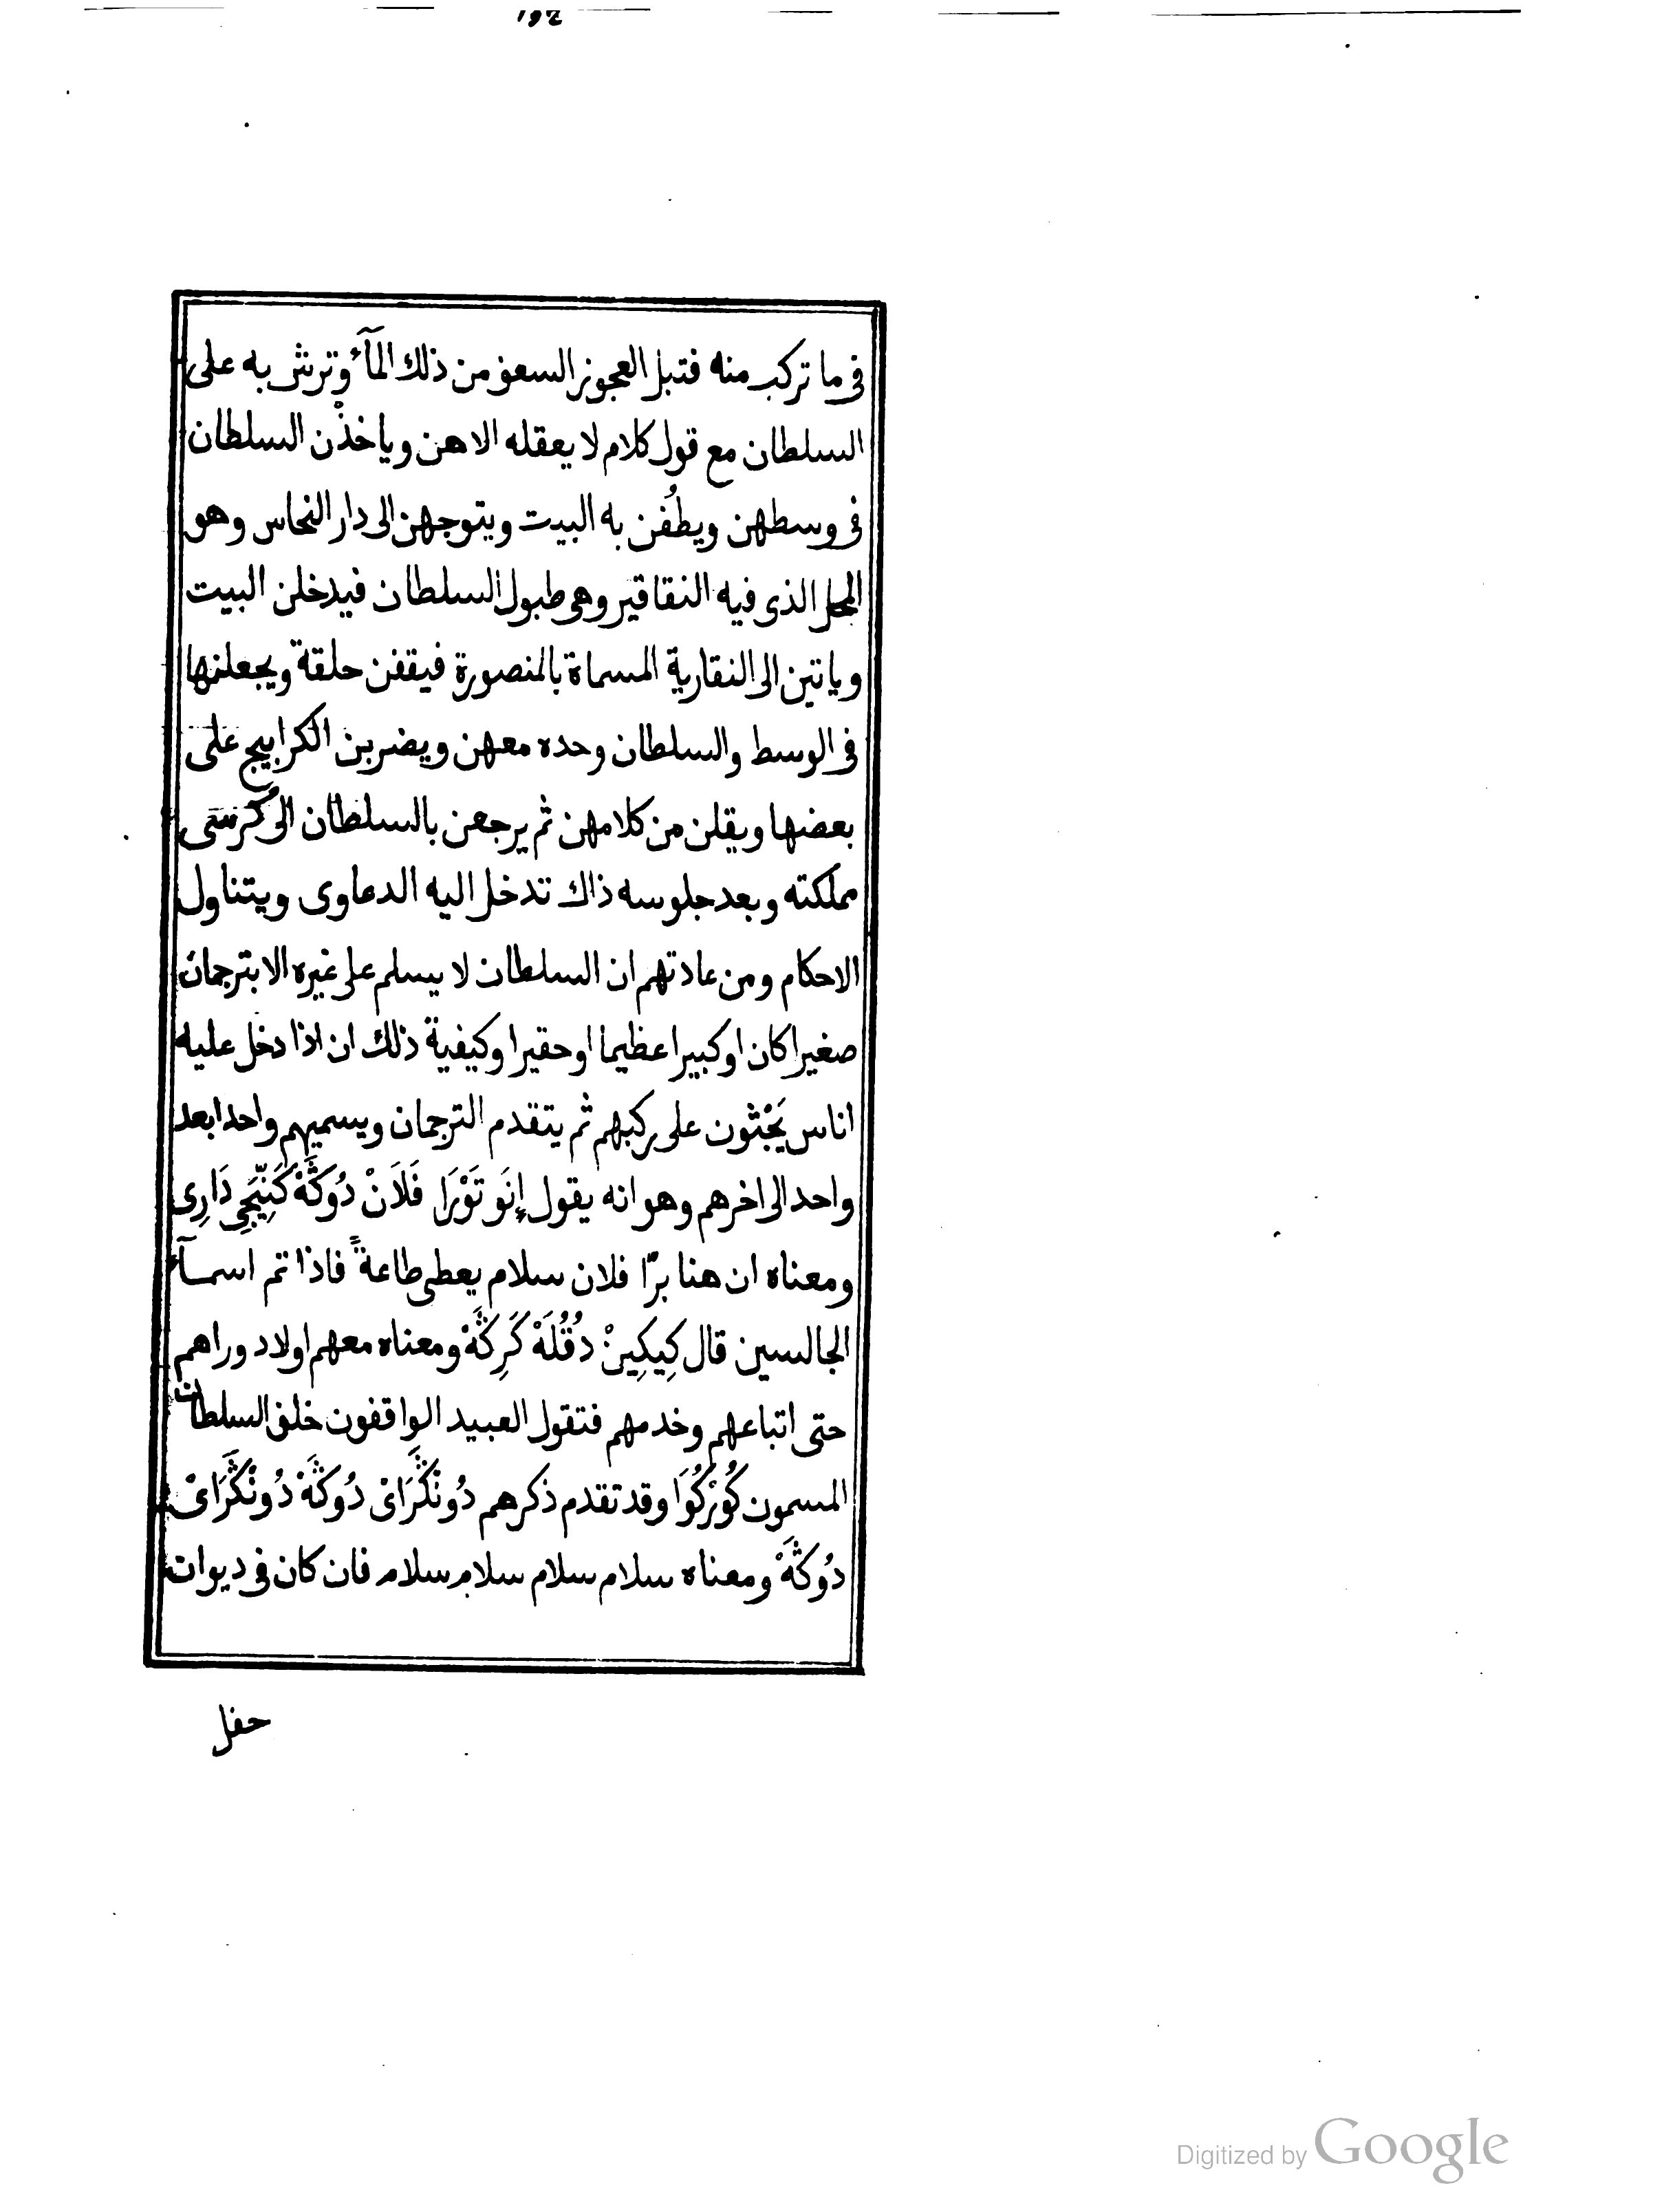 261
فى ما تركب منه فتبل العجوز السعف من ذلك المآء وترش به على
السلطان مع قول كلام لا يعقله الا هن وياخذْن السلطان
فى وسطهن ويطُفن به البيت ويتوجهن الى دار النحاس وهو
المحل الذى فيه النقاقير وهى طبول السلطان فيدخلن البيت
وياتين الى النقارية المسماة بالمنصورة فيقفن حلقة ويجعلنها
فى الوسط والسلطان وحده معهن ويضربن الكرابيج على
بعضها ويقلن من كلامهن ثم يرجعن بالسلطان الى كُرسى
مملكته وبعد جلوسه ذاك تدخل اليه الدعاوى ويتناول
الاحكام ومن عادتهم ان السلطان لا يسلم على غيره الا بترجمان
صغيرا كان او كبيرا عظيما او حقيرا وكيفية ذلك ان اذا دخل عليه
اناس يَجْثون على ركبهم ثم يتقدم الترجمان ويسميهم واحدا بعد
واحد الى اخرهم وهو انه يقول إِنَو تَوْرَا فَلَانْ دُوكَڭَهْ كَنِّيجِى دَارِى
ومعناه ان هنا برّا فلان سلام يعطى طاعةً فاذا تم اسمآء
الجالسين قال كِيكِينْ دُڨُلَهْ كَرِكَڭَهْ ومعناه معهم اولاد وراهم
حتى اتباعهم وخدمهم فتقول العبيد الواقفون خلف السلطان
المسمون كُورْكُوَا وقد تقدم ذكرهم دُونْڭَرَاىْ دُوكَڭَهْ دُونْڭَرَاىْ
دُوكَڭَهْ ومعناه سلام سلام سلام سلام فان كان فى ديوان
حفل
Digitized by Google